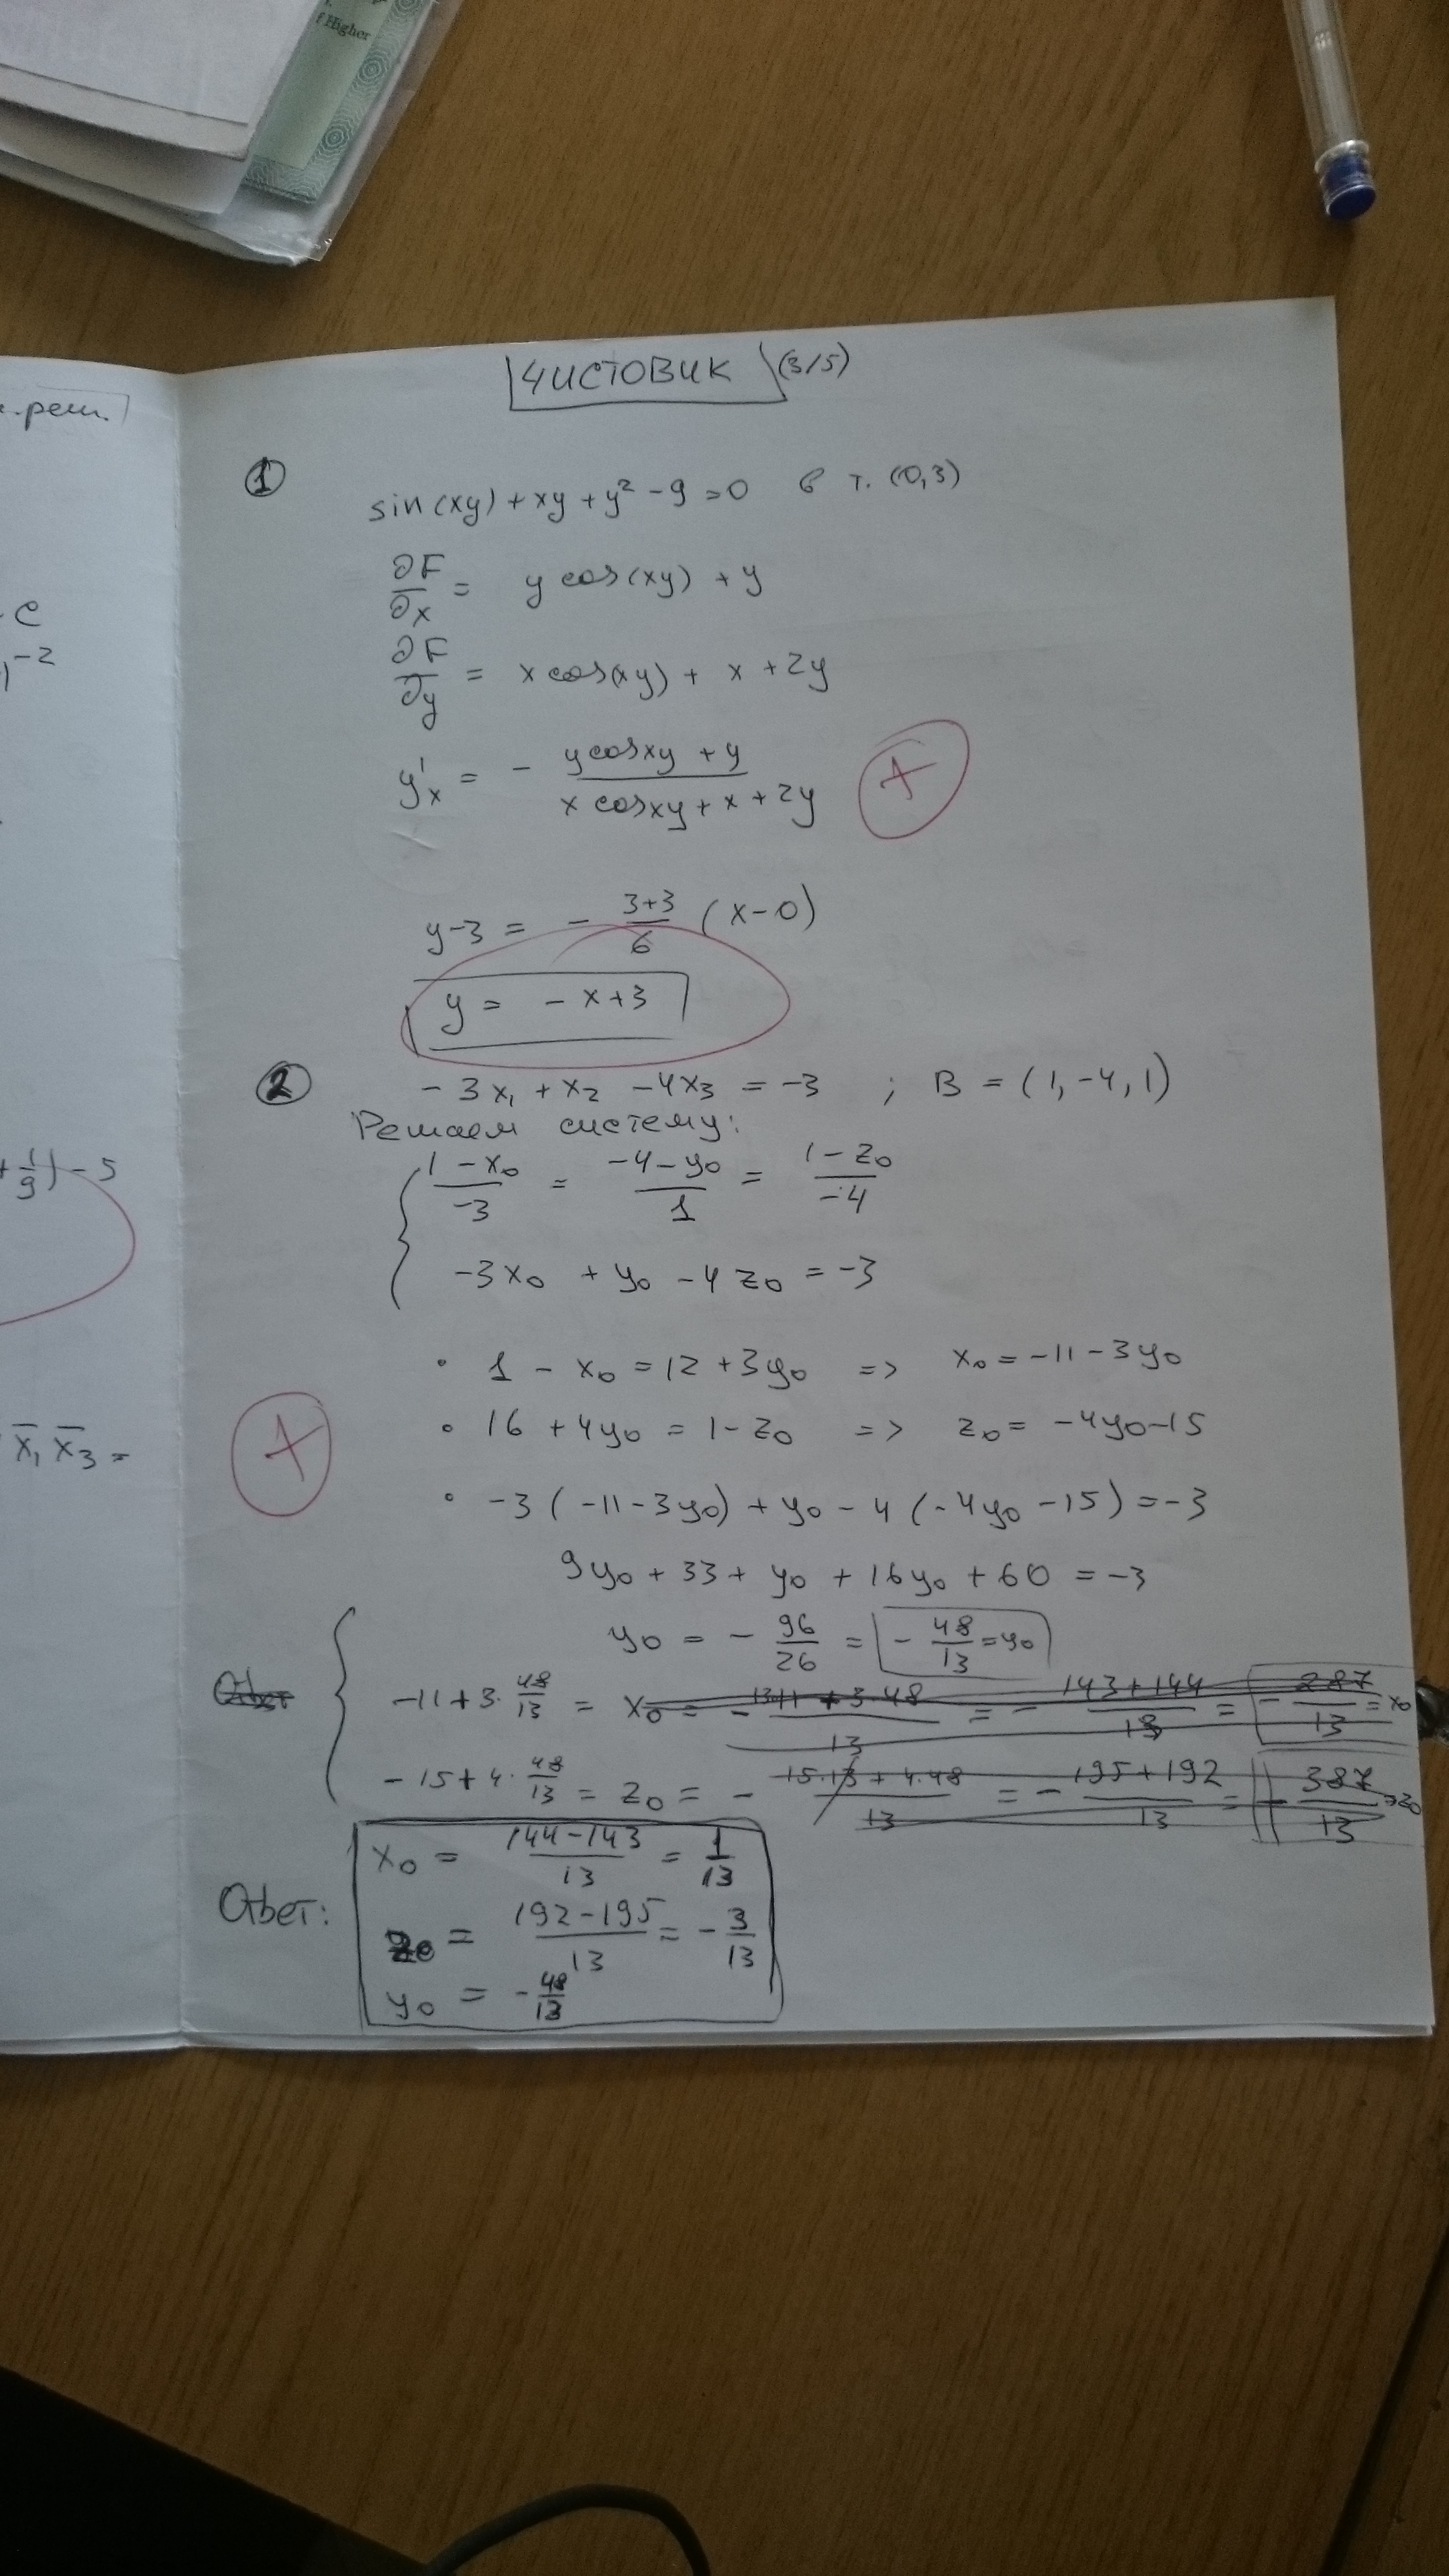 f Higher
ЧИСТОВИК (3/5)
-реш.
- C
-2
+ 1/9) - 5
x̄₁ x̄₃ =
①
sin(xy) + xy + y² - 9 = 0 в т. (0,3)
∂F/∂x = y cos(xy) + y
∂F/∂y = x cos(xy) + x + 2y
y'ₓ = - (y cos xy + y)/(x cos xy + x + 2y)
+
y-3 = - (3+3)/6 (x-0)
y = -x+3
② -3x₁ + x₂ - 4x₃ = -3 ; B = (1, -4, 1)
Решаем систему:
{ (1-x₀)/-3 = (-4-y₀)/1 = (1-z₀)/-4
-3x₀ + y₀ - 4z₀ = -3
• 1 - x₀ = 12 + 3y₀ => x₀ = -11 - 3y₀
+
• 16 + 4y₀ = 1 - z₀ => z₀ = -4y₀-15
• -3(-11-3y₀) + y₀ - 4(-4y₀-15) = -3
9y₀ + 33 + y₀ + 16y₀ + 60 = -3
y₀ = - 96/26 = - 48/13 = y₀
Ответ { -11 + 3·48/13 = x₀ = - (13·11 + 3·48)/13 = - (143+144)/13 = - 287/13 = x₀
-15 + 4·48/13 = z₀ = - (15·13 + 4·48)/13 = - (195+192)/13 = - 387/13 = z₀
Ответ: x₀ = (144-143)/13 = 1/13
z₀ = (192-195)/13 = - 3/13
y₀ = - 48/13